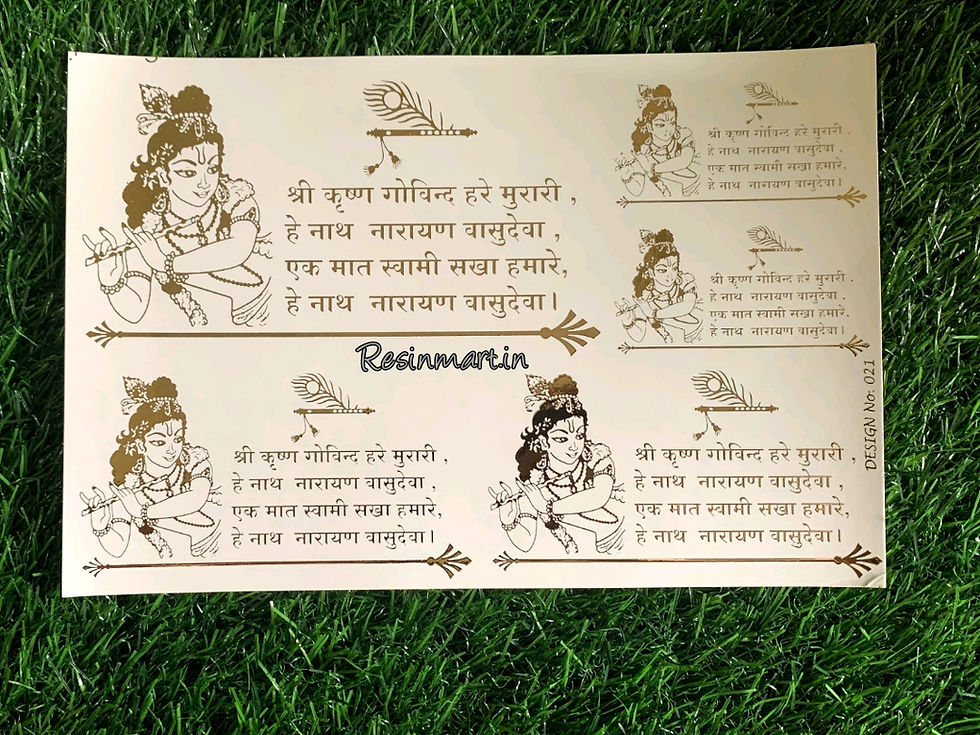 श्री कृष्ण गोविन्द हरे मुरारी ,
हे नाथ नारायण वासुदेवा ,
एक मात स्वामी सखा हमारे,
हे नाथ नारायण वासुदेवा।
श्री कृष्ण गोविन्द हरे मुरारी ,
हे नाथ नारायण वासुदेवा ,
एक मात स्वामी सखा हमारे,
हे नाथ नारायण वासुदेवा।
श्री कृष्ण गोविन्द हरे मुरारी ,
हे नाथ नारायण वासुदेवा ,
एक मात स्वामी सखा हमारे,
हे नाथ नारायण वासुदेवा।
Resinmart.in
श्री कृष्ण गोविन्द हरे मुरारी ,
हे नाथ नारायण वासुदेवा ,
एक मात स्वामी सखा हमारे,
हे नाथ नारायण वासुदेवा।
श्री कृष्ण गोविन्द हरे मुरारी ,
हे नाथ नारायण वासुदेवा ,
एक मात स्वामी सखा हमारे,
हे नाथ नारायण वासुदेवा।
DESIGN No: 021